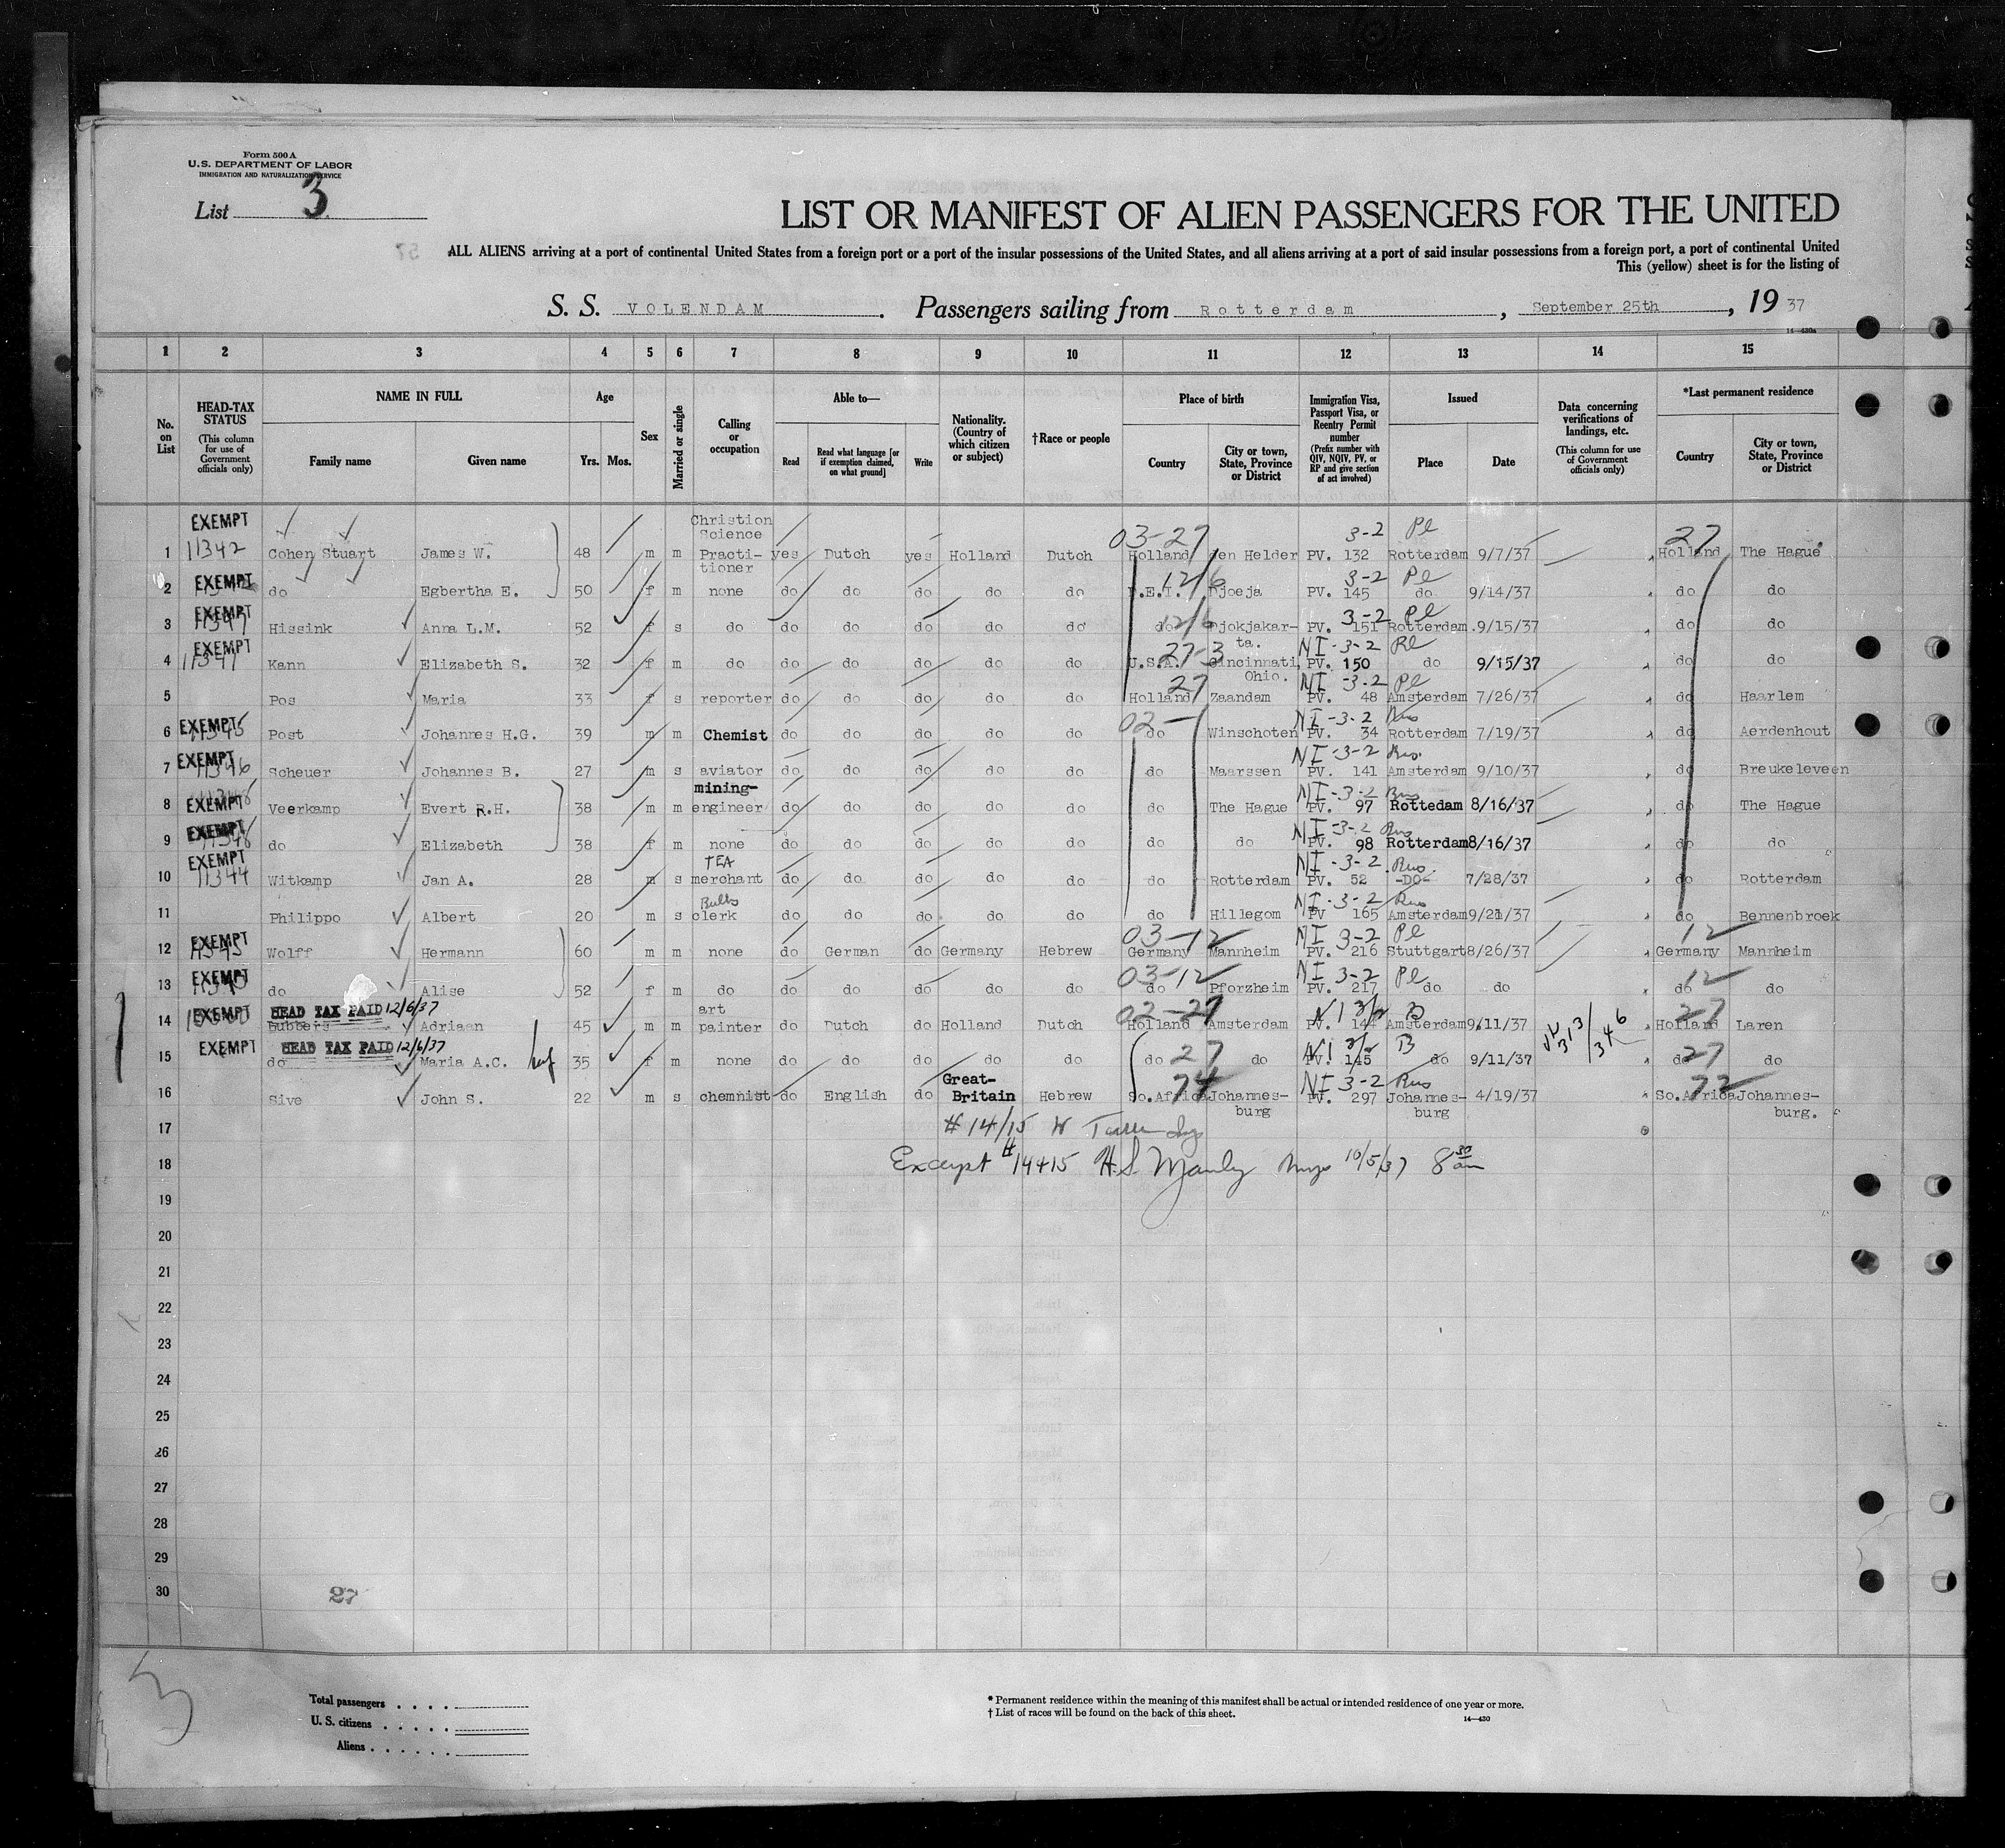 Form 500 A
U.S. DEPARTMENT OF LABOR
IMMIGRATION AND NATURALIZATION SERVICE
List 3
LIST OR MANIFEST OF ALIEN PASSENGERS FOR THE UNITED
ALL ALIENS arriving at a port of continental United States from a foreign port or a port of the insular possessions of the United States, and all aliens arriving at a port of said insular possessions from a foreign port, a port of continental United
This (yellow) sheet is for the listing of
S. S. VOLENDAM . Passengers sailing from Rotterdam , September 25th , 19 37
14—430a
1 2 3 4 5 6 7 8 9 10 11 12 13 14 15
No. on List
HEAD-TAX STATUS (This column for use of Government officials only)
NAME IN FULL Family name Given name
Age Yrs. Mos.
Sex
Married or single
Calling or occupation
Able to— Read Read what language [or if exemption claimed, on what ground] Write
Nationality. (Country of which citizen or subject)
†Race or people
Place of birth Country City or town, State, Province or District
Immigration Visa, Passport Visa, or Reentry Permit number (Prefix number with QIV, NQIV, PV, or RP and give section of act involved)
Issued Place Date
Data concerning verifications of landings, etc. (This column for use of Government officials only)
*Last permanent residence Country City or town, State, Province or District
1 EXEMPT 11342 Cohen Stuart James W. 48 m m Christion Science Practi-tioner yes Dutch yes Holland Dutch 03-27 Holland den Helder 3-2 PV. 132 Pl Rotterdam 9/7/37 27 Holland The Hague
2 EXEMPT do Egbertha E. 50 f m none do do do do do 12/6 N.E.I. Djoeja 3-2 PV. 145 Pl do 9/14/37 do do
3 EXEMPT Hissink Anna L.M. 52 f s do do do do do do 12/6 do Djokjakar-ta. 3-2 PV. 151 Pl Rotterdam. 9/15/37 do do
4 EXEMPT Kann Elizabeth S. 32 f m do do do do do do 27-3 U.S.A. Cincinnati, Ohio. NI-3-2 PV. 150 do 9/15/37 do do
5 Pos Maria 33 f s reporter do do do do do 27 Holland Zaandam NI-3-2 PV. 48 Pl Amsterdam 7/26/37 do Haarlem
6 EXEMPT Post Johannes H.G. 39 m m Chemist do do do do do 02- do Winschoten NI-3-2 PV. 34 Rotterdam 7/19/37 do Aerdenhout
7 EXEMPT 11346 Scheuer Johannes B. 27 m s aviator do do do do do do Maarssen NI-3-2 PV. 141 Amsterdam 9/10/37 do Breukeleveen
8 EXEMPT Veerkamp Evert R.H. 38 m m mining-engineer do do do do do do The Hague NI-3-2 PV. 97 Rottedam 8/16/37 do The Hague
9 EXEMPT do Elizabeth 38 f m none do do do do do do do NI-3-2 PV. 98 Rotterdam 8/16/37 do do
10 EXEMPT 11344 Witkamp Jan A. 28 m s TEA merchant do do do do do do Rotterdam NI-3-2 PV. 52 -DO- 7/28/37 do Rotterdam
11 Philippo Albert 20 m s Bulbs clerk do do do do do do Hillegom NI-3-2 PV 165 Amsterdam 9/21/37 do Bennenbroek
12 EXEMPT Wolff Hermann 60 m m none do German do Germany Hebrew 03-12 Germany Mannheim NI 3-2 PV. 216 Pl Stuttgart 8/26/37 12 Germany Mannheim
13 EXEMPT do Alise 52 f m do do do do do do 03-12 do Pforzheim NI 3-2 PV. 217 Pl do do 12 do do
14 EXEMPT HEAD TAX PAID 12/6/37 Lubbers Adriaan 45 m m art painter do Dutch do Holland Dutch 02-27 Holland Amsterdam NI 3/2 PV. 144 B Amsterdam 9/11/37 27 Holland Laren
15 EXEMPT HEAD TAX PAID 12/6/37 do Maria A.C. 35 f m none do do do do do 27 do do NI PV. 145 B do 9/11/37 27 do do
16 Sive John S. 22 m s chemnist do English do Great-Britain Hebrew 74 So.Africa Johannes-burg NI 3-2 PV. 297 Johannes-burg 4/19/37 72 So.Africa Johannes-burg.
17 # 14/15
18 Except # 14+15 H.S. Manly 10/5/37 8 30 am
19
20
21
22
23
24
25
26
27
28
29
30
27
3
Total passengers
U. S. citizens
Aliens
* Permanent residence within the meaning of this manifest shall be actual or intended residence of one year or more.
† List of races will be found on the back of this sheet.
14—430